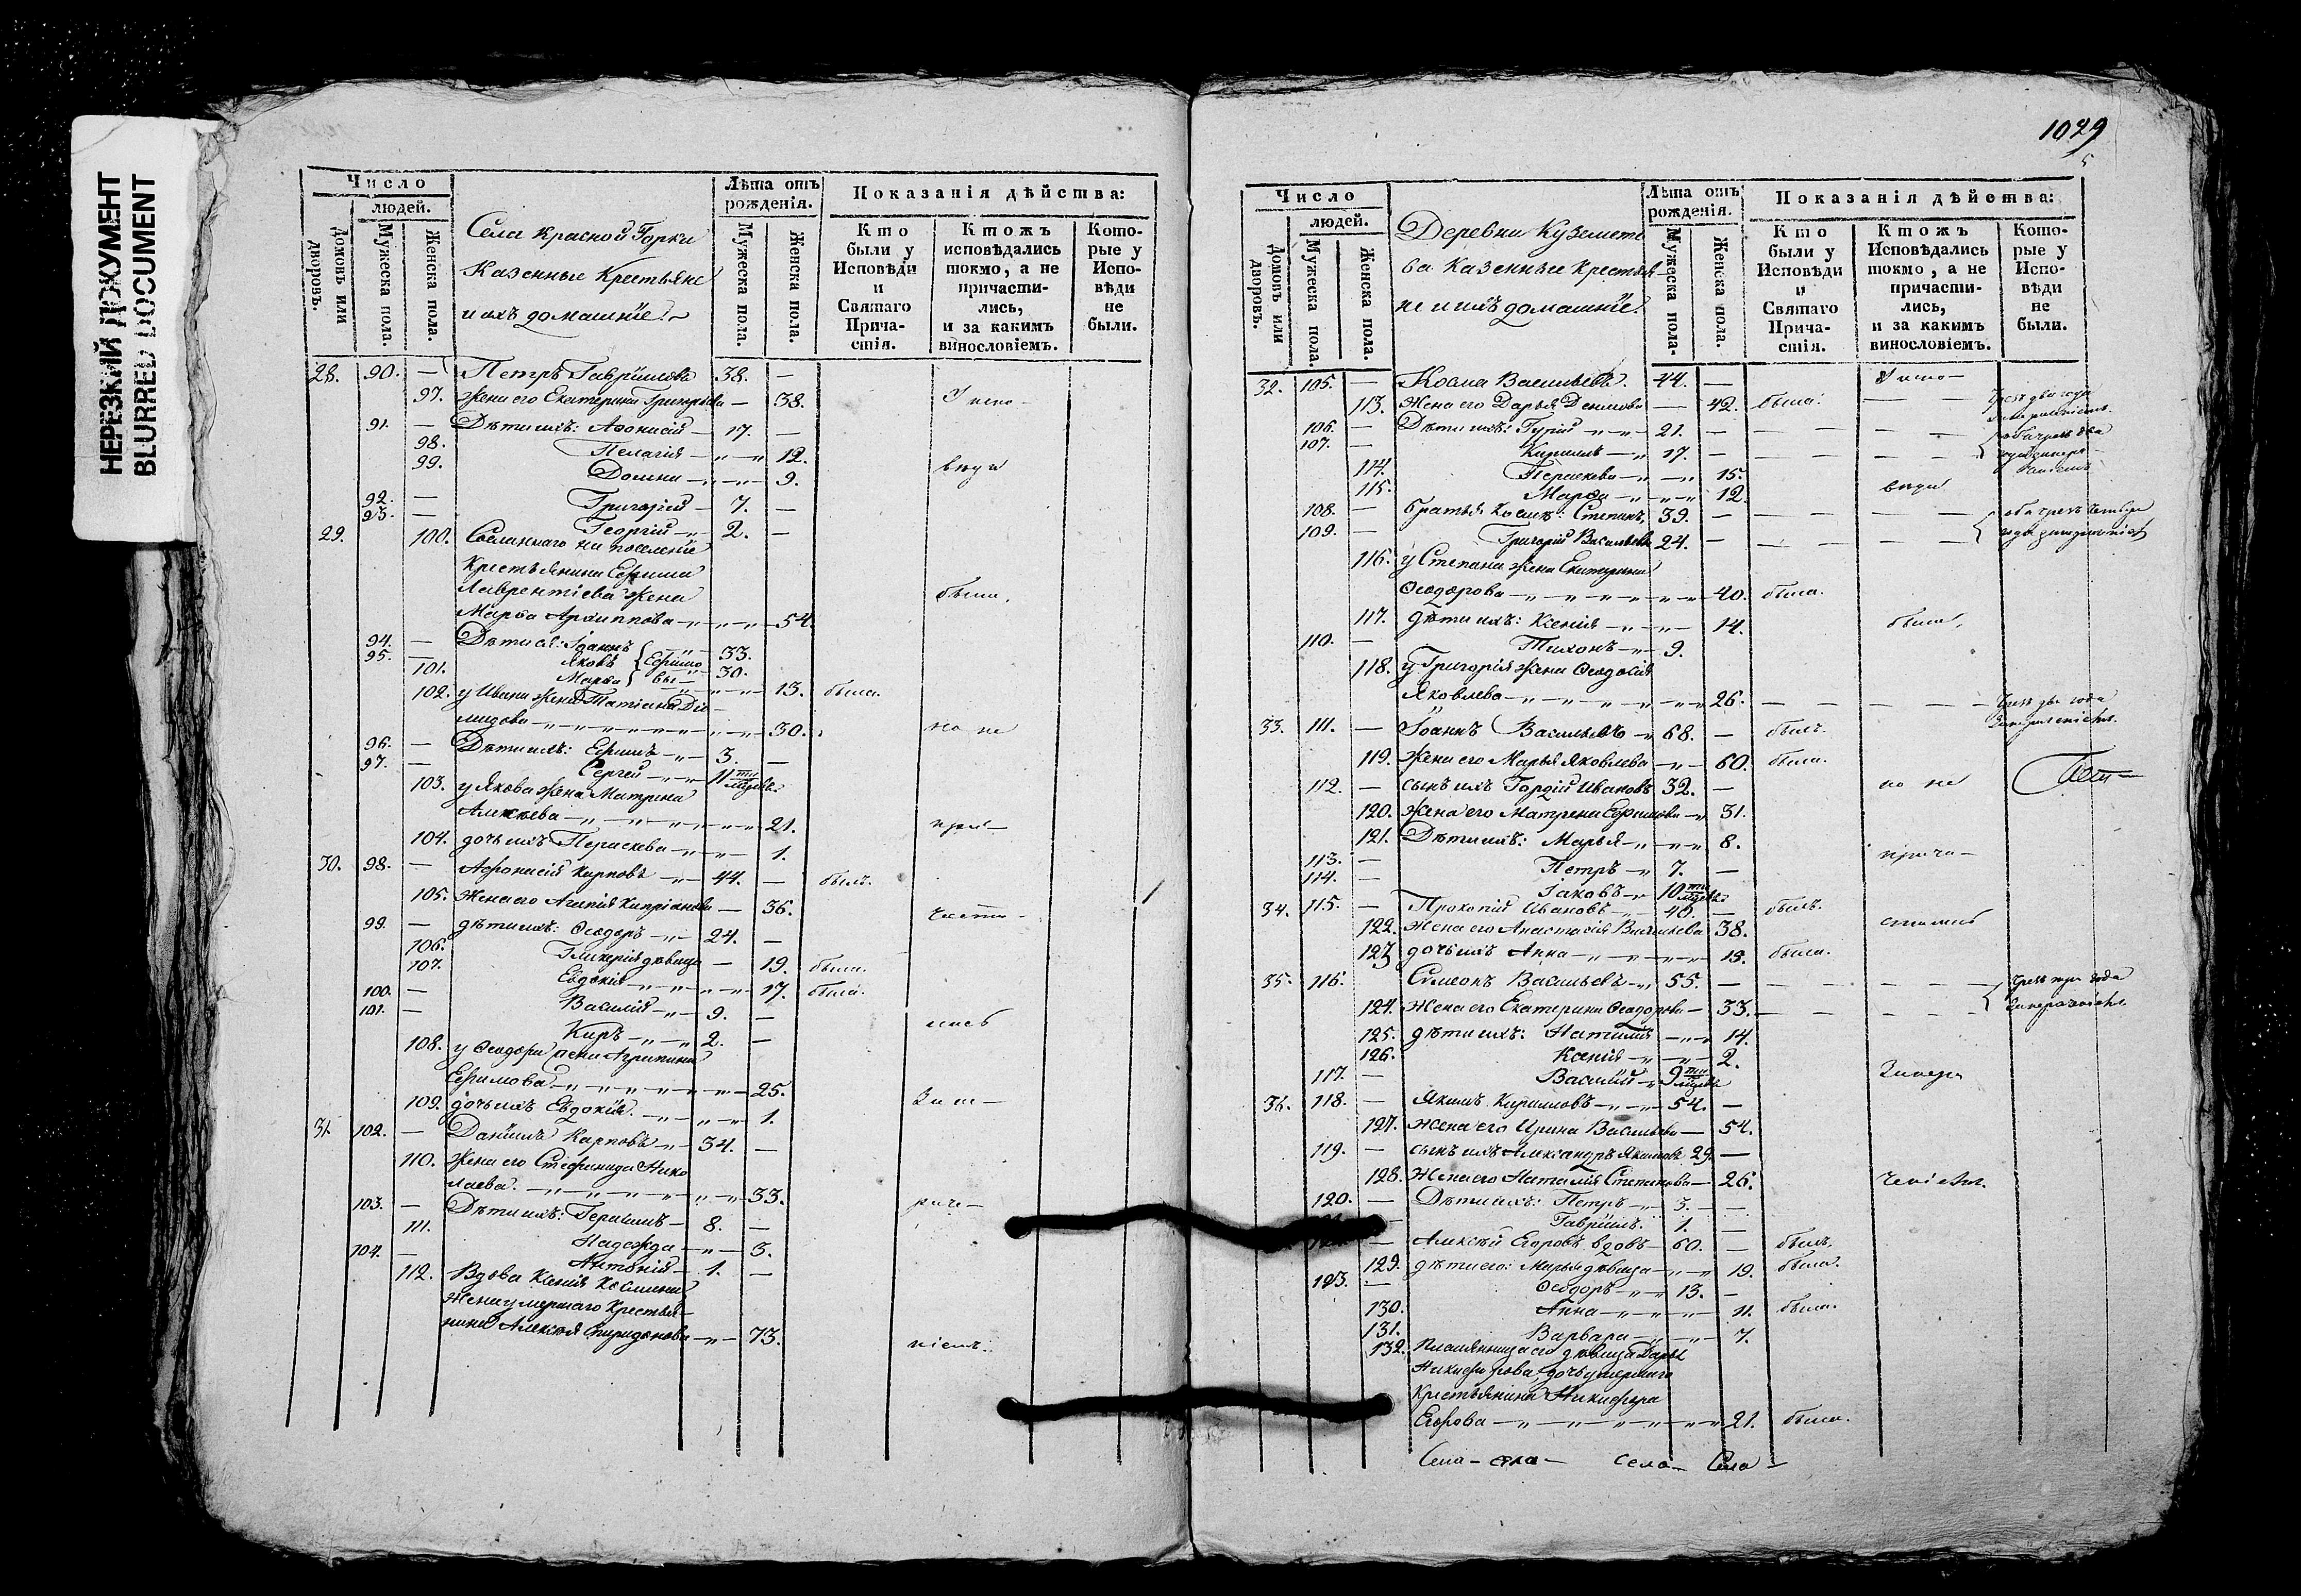 НЕРЕЗКИЙ ДОКУМЕНТ
BLURRED DOCUMENT
Число
людей.
Домовъ или дворовъ.
Мужеска пола.
Женска пола.
Села Красной Горки
Казенные Крестьяне
и ихъ домашніе.
Лѣта отъ рожденія.
Мужеска пола.
Женска пола.
Показанія дѣйства:
Кто были у Исповѣди и Святаго Причастія.
Ктожъ исповѣдались токмо, а не причастились, и за какимъ винословіемъ.
Которые у Исповѣди не были.
28. 90. — Петръ Гавріиловъ 38. —
97. Жена его Екатерина Григорьева — 38.
91. — Дѣти ихъ: Афонасій — 17. —
98. Пелагія — 12.
99. Домна — 9.
92. — Григорій — 7. —
93. — Георгій — 2. —
29. 100. Сосланнаго на поселеніе
Крестьянина Ефима
Лаврентіева жена
Марѳа Архиппова — 54. были,
94. — Дѣти ея: Іоаннъ 33.
95. — Яковъ Ефимо 30.
101. Марѳа вы — 13. была.
102. у Ивана жена Татіана Діо
мидова — 30. но не
96. — Дѣти ихъ: Ефимъ — 3. —
97. — Сергей — 11 ти мѣсяц.
103. у Якова жена Матрена
Алексѣева — 21. при—
104. дочь ихъ Параскева — 1.
30. 98. — Афонасій Карповъ — 44. — былъ.
105. Жена его Агапія Кипріанова — 36.
99. — дѣти ихъ: Ѳеодоръ — 24. — части—
106. Гликерія дѣвица — 19. была.
107. Евдокія — 17. была.
100. — Василій — 9. —
101. — Киръ — 2. — лись
108. у Ѳеодора жена Агрипина
Ефимова — 25.
109. дочь ихъ Евдокія. — 1.
31. 102. — Даніилъ Карповъ — 34. —
110. Жена его Стефанида Нико
лаева. — 33.
103. — Дѣти ихъ: Герасимъ — 8. —
111. Надежда — 3.
104. — Антоній — 1. —
112. Вдова Ксенія Космина
Жена умершаго Крестья—
нина Алексѣя Спиридонова — 73. ніемъ.
1029
Число
людей.
Домовъ или дворовъ.
Мужеска пола.
Женска пола.
Деревни Куземете
ва Казенные Крестья—
не и ихъ домашніе.
Лѣта отъ рожденія.
Мужеска пола.
Женска пола.
Показанія дѣйства:
Кто были у Исповѣди и Святаго Причастія.
Ктожъ Исповѣдались токмо, а не причастились, и за какимъ винословіемъ.
Которые у Исповѣди не были.
32. 105. — Косма Васильевъ. 44. —
113. Жена его Дарья Денисова — 42. была.
106. — Дѣти ихъ: Гурій — 21. —
107. — Кирилъ — 17. —
114. Параскева — 15.
115. Марѳа — 12.
108. — братья Космы: Степанъ, 39. —
109. — Григорій Васильевы 24. —
116. у Степана жена Екатерина
Ѳеодорова — 40. была.
117. дѣти ихъ: Ксенія — 14. были,
110. — Тихонъ — 9.
118. у Григорія жена Ѳеодосія
Яковлева — 26. —
33. 111. — Іоаннъ Васильевъ — 68. — былъ.
119. Жена его Марья Яковлева — 60. была.
112. — сынъ ихъ Гордій Ивановъ 32. — но не
120. Жена его Матрена Ефимова — 31.
121. Дѣти ихъ: Марья — 8.
113. — Петръ — 7. — прича—
114. — Іаковъ — 10 ти мѣсяц.
34. 115. — Прокопій Ивановъ — 40. — былъ.
122. Жена его Анастасія Васильева 38. стились
123 дочь ихъ Анна — 13. была.
35. 116. Симеонъ Васильевъ — 55. —
124. Жена его Екатерина Ѳеодорова — 33. —
125. дѣти ихъ: Наталія — 14.
126. Ксенія — 2.
117. — Василій — 9 ти мѣсяц
36. 118. — Якимъ Кириловъ — 54. —
127. Жена его Ирина Васильева — 54.
119. — сынъ ихъ Александръ Якимовъ 29. —
128. Жена его Наталія Степанова — 26.
120. — Дѣти ихъ: Петръ — 3. —
— Гавріилъ. 1. —
— Алексѣй Егоровъ вдовъ — 60. — былъ.
129. дѣти его: Марья дѣвица — 19. была.
123. — Ѳеодоръ — 13. —
130. Анна — 11. была.
131. Варвара — 7.
132. Племянница его дѣвица Дарья
Никифорова, дочь умершаго
Крестьянина Никифора
Егорова — 21. была.
Села — села — села — Села —